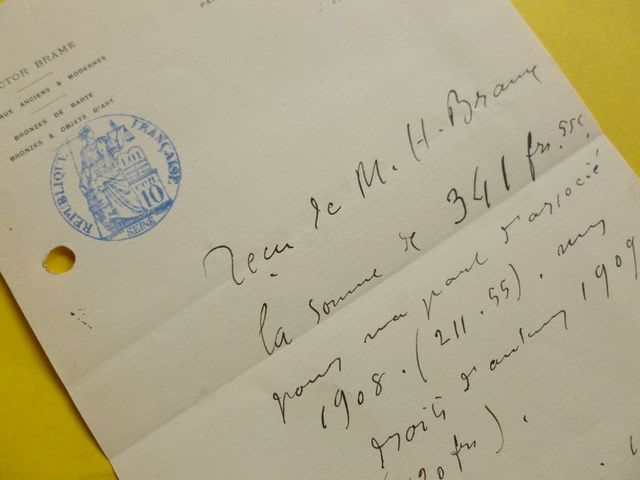 CTOR BRAME
AUX ANCIENS & MODERNES
BRONZES DE BARYE
BRONZES & OBJETS D'ART
PA
RÉPUBLIQUE FRANÇAISE
LOI
10
SEINE
Reçu de M. H. Brame
la somme de 341 frs. 55c.
pour ma part d'associé
1908. (211.55). mes
droits d'auteur 1909
30 frs).